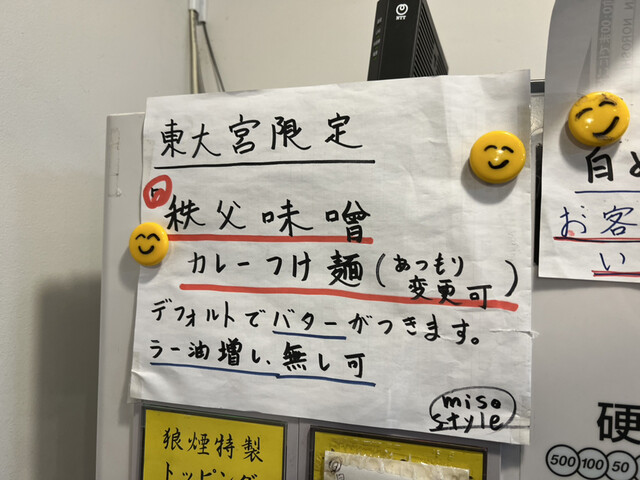 NTT
東大宮限定
秩父味噌
カレーつけ麺(あつもり
変更可)
デフォルトでバターがつきます。
ラー油増し、無し可
miso
style
お客
い
狼煙特製
トッピング
硬
500 100 50